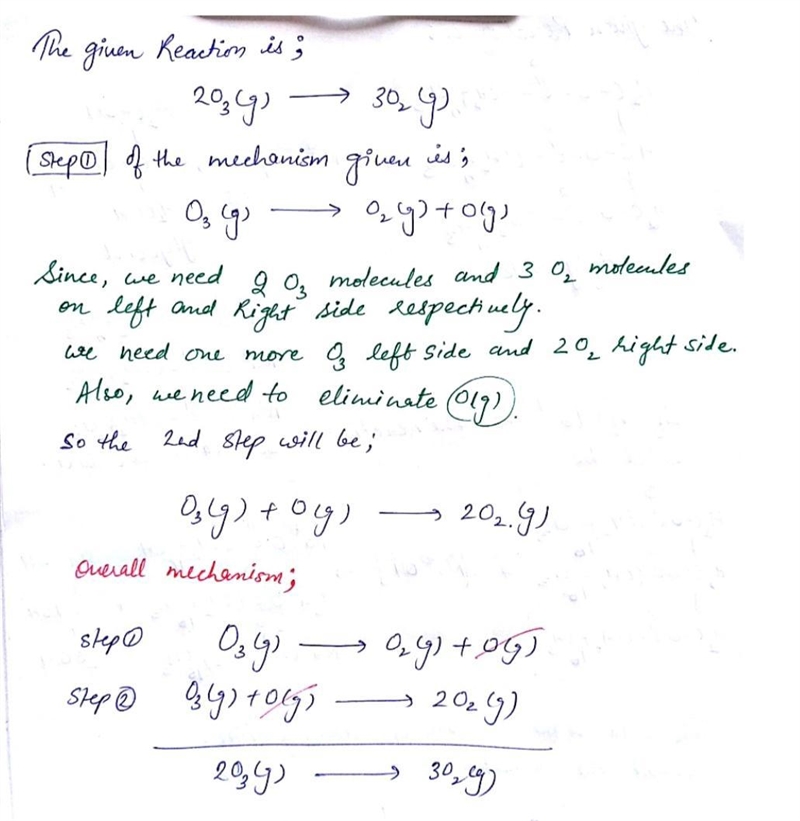 The given Reaction is ;
2O₃(g) ⟶ 3O₂(g)
Step ① of the mechanism given is ;
O₃(g) ⟶ O₂(g) + O(g)
Since, we need 2 O₃ molecules and 3 O₂ molecules
on left and Right side respectively.
we need one more O₃ left side and 2O₂ right side.
Also, we need to eliminate O(g).
So the 2nd step will be ;
O₃(g) + O(g) ⟶ 2O₂.(g)
Overall mechanism ;
step ① O₃(g) ⟶ O₂(g) + O(g)
Step ② O₃(g) + O(g) ⟶ 2O₂(g)
2O₃(g) ⟶ 3O₂(g)